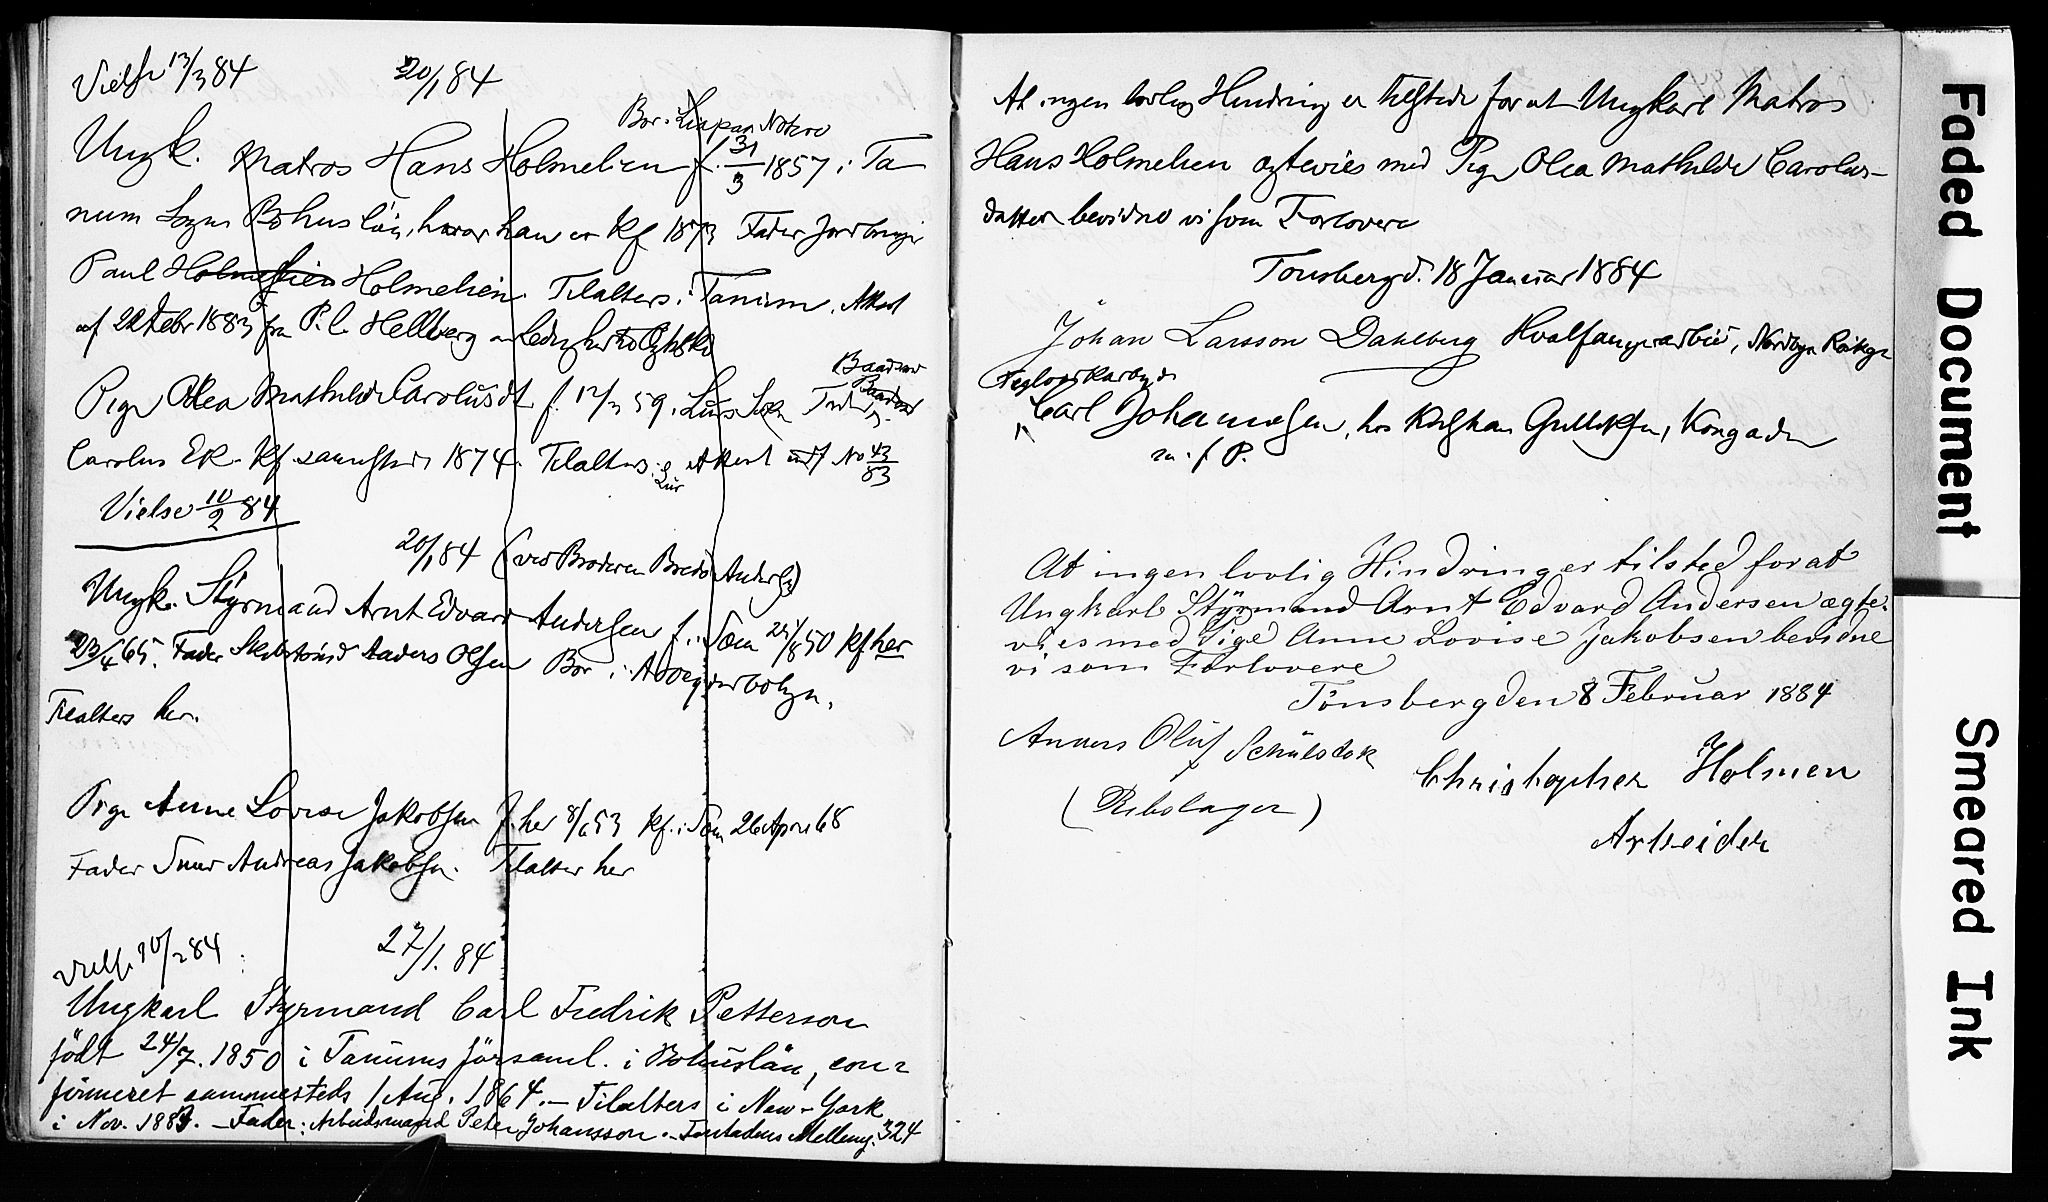 Viels 13/3 84 20/1 84
Bor i
Ungk. Matros Hans Holmelien f. 31/3 1857 i Ta
num Sogn Bohuslän, hvor han er Kf 1873 Fader
Paul Holmelien Holmelien. Tilalters i Tanum. Attest
af 22 Febr 1883 fra P. C. Hellberg
Baadsm
Pige Olea Mathilde Carolusdt f. 12/3 59 i Lurs Sogn Fader
Carolus Ek. Kf. sammesteds 1874. Tilalters i Lur Attest No 43/83
Vielse 10/2 84
20/1 84 (ved Broderen Andersen)
Ungk. Styrmand Arnt Edvard Andersen f. i Sem 24/8 50 Kf her
23/4 65. Fader Anders Olsen Bor i
Tilalters her.
Pige Anne Lovise Jakobsen f. her 8/6 53 Kf. i Sem 26 April 68
Fader Andreas Jakobsen. Tilalter her
Viels 10/2 84. 27/1. 84
Ungkarl Styrmand Carl Fredrik Petterson
født 24/7. 1850 i Tanums församl. i Bohuslän, con-
firmeret sammesteds 1 Aug. 1864. — Tilalters i New-York
i Nov. 1883. — Fader: Arbeidsmand Peter Johansson. — 324
At ingen lovlig Hindring er tilstede for at Ungkarl Matros
Hans Holmelien ægtevies med Pige Olea Mathilde Carolus-
datter bevidne vi som Forlovere
Tønsberg d. 18 Januar 1884
Johan Larsson Dahlberg Hvalfangerarbeid,
Carl Johannesen, hos Gulliksen,
m. f. P.
At ingen lovlig Hindring er tilsted for at
Ungkarl Styrmand Arnt Edvard Andersen ægte-
vies med Pige Anne Lovise Jakobsen bevidne
vi som Forlovere
Tönsberg den 8 Februar 1884
Anners Oluf
Christopher Holmen
(Rebslager)
Arbeider
Faded Document
Smeared Ink